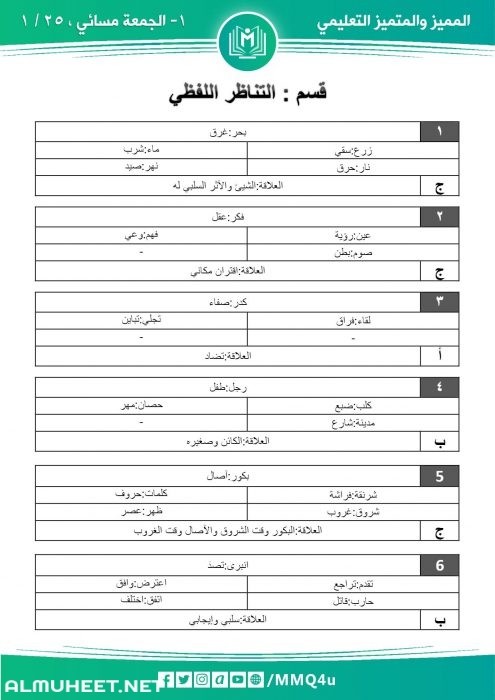 المميز والمتميز التعليمي
١- الجمعة مسائي ، ٢٥ / ١
قسم : التناظر اللفظي
١ بحر:غرق
زرع:سقي ماء:شرب
نار:حرق نهر:صيد
ج العلاقة:الشيئ والأثر السلبي له
٢ فكر:عقل
عين:رؤية فهم:وعي
صوم:بطن -
ج العلاقة:اقتران مكاني
٣ كدر:صفاء
لقاء:فراق تجلي:تباين
- -
أ العلاقة:تضاد
٤ رجل:طفل
كلب:ضبع حصان:مهر
مدينة:شارع -
ب العلاقة:الكائن وصغيره
5 بكور:أصال
شرنقة:فراشة كلمات:حروف
شروق:غروب ظهر:عصر
ج العلاقة:البكور وقت الشروق والأصال وقت الغروب
6 انبرى:تصد
تقدم:تراجع اعترض:وافق
حارب:قاتل اتفق:اختلف
ب العلاقة:سلبي وإيجابي
/MMQ4u
ALMUHEET.NET